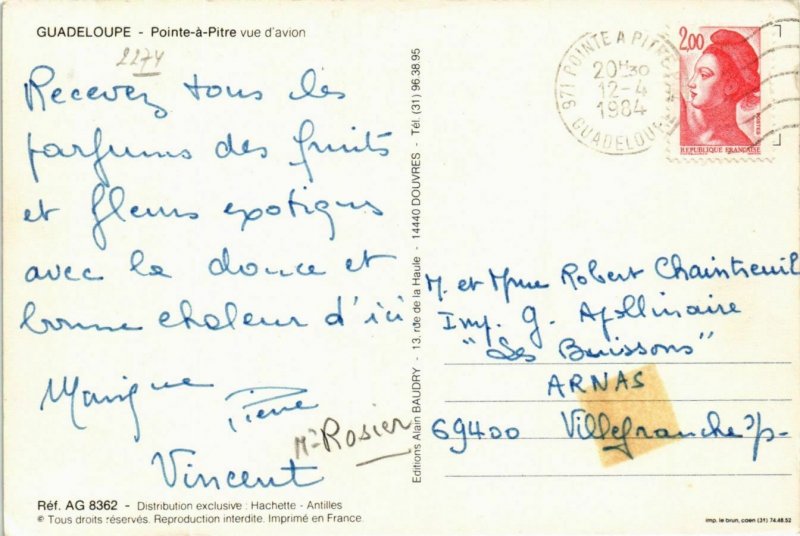 GUADELOUPE - Pointe-à-Pitre vue d'avion
2274
Recevez tous les
parfums des fruits
et fleurs exotiques
avec la douce et
bonne chaleur d'ici
Pierre
Vincent
Mr Rosier
Réf. AG 8362 - Distribution exclusive : Hachette - Antilles
© Tous droits réservés. Reproduction interdite. Imprimé en France
Editions Alain BAUDRY - 13, rue de la Haule - 14440 DOUVRES - Tél. (31) 96.38.95
971 POINTE A PITRE
20H30
12-4
1984
GUADELOUPE
2,00
POSTES
REPUBLIQUE FRANÇAISE
M. et Mme Robert Chaintreuil
Imp. G. Apollinaire
"Les Buissons"
ARNAS
69400 Villefranche s/
imp. le brun, caen (31) 74.48.52